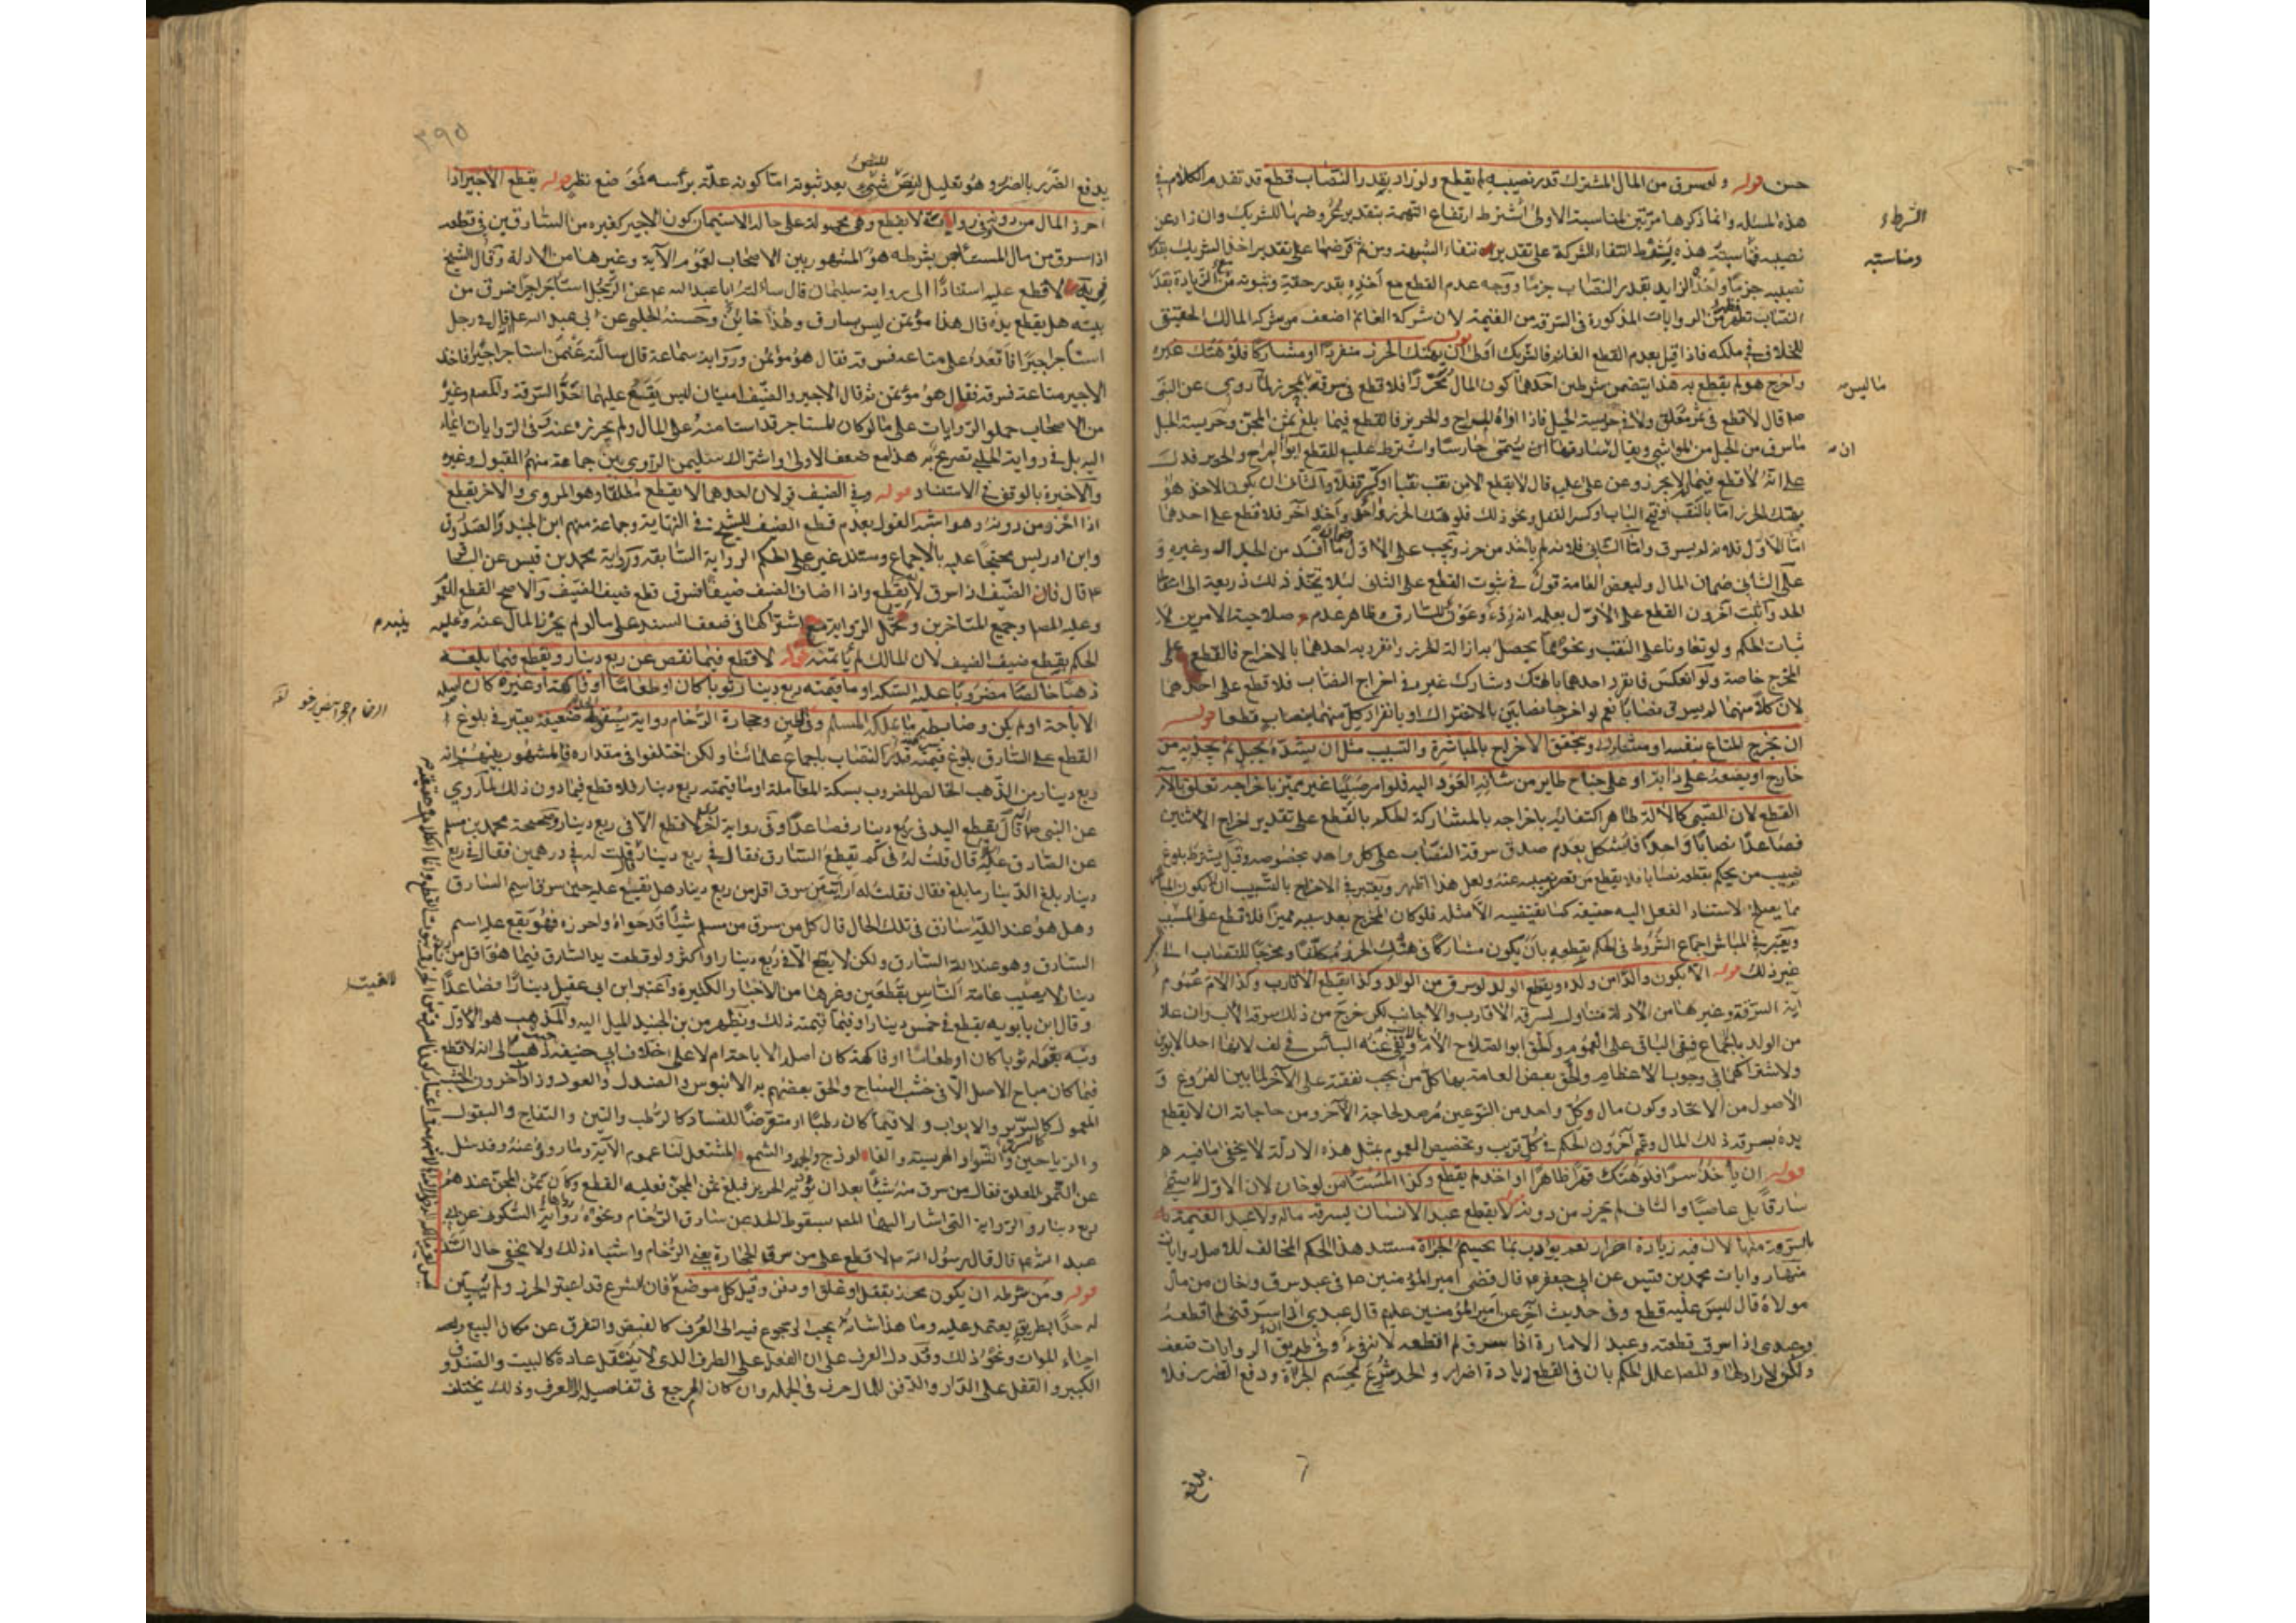 حسن قوله ولو سرق من المال المشترك قدر نصيبه لم يقطع ولو زاد بقدر النصاب قطع قد تقدم الكلام في
هذه المسئلة وانما ذكرها مرتين لمناسبة الاولى اشتراط ارتفاع التهمة بتقدير عروضها للشريك وان زاد عن
نصيبه فمناسبة هذه لشرط انتفاء الشركة على تقدير انتفاء الشبهة ومن ثم فرضها على تقدير اخذ الشريك بقدر
نصيبه جزما واخذ الزايد بقدر النصاب جزما ووجه عدم القطع مع أخذه بقدر حقه وثبوته مع الزيادة بقدر
النصاب تظهر من الروايات المذكورة في السرقة من الغنيمة لان شركة الغانم اضعف من شركة المالك الحقيقي
للخلاف في ملكه فاذا قيل بعدم القطع الغانم فالشريك اولى قوله ان يهتك الحرز منفردا او مشاركا فلو هتك غيره
واخرج هو لم يقطع به هذا يتضمن شرطين احدهما كون المال محرزا فلا قطع في سرقة ما ليس بمحرز لما روي عن النبي
ص قال لا قطع في ثمر معلق ولا في حريسة الجبل فاذا اواه المراح والجرين فالقطع فيما بلغ ثمن المجن وحريسة الجبل
ما سرق من الجبل من المواشي ويقال ان سارقها يسمى حارسا واشترط عليه للقطع ايواء المراح والجرين فدل
على انه لا قطع فيما لم يحرز وعن علي عليه قال لا يقطع الا من نقب نقبا او كسر قفلا والثاني ان يكون الاخذ هو
يهتك الحرز اما بالنقب او فتح الباب او كسر القفل ونحو ذلك فلو هتك الحرز واحد واخذ آخر فلا قطع على احدهما
اما الاول فلانه لم يسرق واما الثاني فلانه لم يأخذ من حرز ويجب على الاول ضمان ما افسد من الجدار وغيره و
على الثاني ضمان المال ولبعض العامة قول في ثبوت القطع على الثاني لئلا يتخذ ذلك ذريعة الى اسقاط
الحد واثبت آخرون القطع على الاول بعلة انه ردء وعون للسارق وظاهر عدم صلاحية الامرين لا
ثبات الحكم ولو تعاونا على النقب ونحوهما يحصل به ازالة الحرز وانفرد به احدهما بالاخراج فالقطع على
المخرج خاصة ولو انعكس فانفرد احدهما بالهتك وشارك غيره في اخراج النصاب فلا قطع على احدهما
لان كلا منهما لم يسرق نصابا نعم لو اخرجا نصابين بالاشتراك او بانفراد كل منهما بنصاب قطعا قوله
ان يخرج المتاع بنفسه او مشاركا ويتحقق الاخراج بالمباشرة والتسبيب مثل ان يشده بحبل ثم يجذبه من
خارج او يضعه على دابة او على جناح طاير من شانه العود اليه فلو امر صبيا غير مميز باخراجه تعلق بالآمر
القطع لان الصبي كالآلة ظاهر اكتفائه باخراجه بالمشاركة الحكم بالقطع على تقدير اخراج الاثنين
فصاعدا نصابا واحدا فيشكل بعدم صدق سرقة النصاب على كل واحد بخصوصه وقيل يشترط بلوغ
نصيب من يحكم بقطعه نصابا فلا يقطع من قصر نصيبه عنه ولعل هذا اظهر ويعتبر في الاخراج بالتسبيب ان يكون
مما يصلح لاستناد الفعل اليه حقيقة كما يقتضيه الامثلة فلو كان المخرج بعد سببه مميزا فلا قطع على المسبب
ويعتبر في المباشر اجتماع الشروط في الحكم بقطعه بان يكون مشاركا في هتك الحرز مكلفا ومخرجا للنصاب الى
غير ذلك قوله الا يكون والدا من ولده ويقطع الولد لو سرق من الوالد وكذا يقطع الاقارب وكذا الام عموم
آية السرقة وغيرها من الادلة متناول لسرقة الاقارب والاجانب لكن خرج من ذلك سرقة الاب وان علا
من الولد بالاجماع فبقي الباقي على العموم والحق ابو الصلاح الام بالاب ونفى عنه الباس في لف لانها احد الابوين
ولاشتراكهما في وجوب الاعظام والحق بعض العامة بهما كل من يجب نفقته على الآخر لما بين الفروع و
الاصول من الاتحاد وكون مال وكل واحد من النوعين مرصد لحاجة الآخر ومن حاجاته ان لا يقطع
يده بسرقة ذلك المال وعمم آخرون الحكم في كل قريب وتخصيص العموم بمثل هذه الادلة لا يخفى ما فيه
قوله ان يأخذ سرا فلو هتك قهرا ظاهرا او اخذ لم يقطع وكذا المستأمن لو خان لان الاول لا يسمى
سارقا بل غاصبا والثاني لم يحرز من دونه قوله لا يقطع عبد الانسان بسرقة ماله ولا عبد الغنيمة
بالسرقة منها لان فيه زيادة اضرار نعم يؤدب بما يحسم الجرأة مستند هذا الحكم المخالف للاصل روايات
منها روايات محمد بن قيس عن ابي جعفر ع قال قضى امير المؤمنين ع في عبد سرق واختان من مال
مولاه قال ليس عليه قطع وفي حديث آخر عن امير المؤمنين عليه قال عبدي اذا سرقني لم اقطعه
وعبدي اذا سرق قطعته وعبد الامارة اذا سرق لم اقطعه لانه فيء وفي طريق الروايات ضعف
ولكن لا راد لها والمصـ علل الحكم بان في القطع زيادة اضرار والحد شرع لحسم الجرأة ودفع الضرر فلا
الشرطاء
ومناسبه
ما ليس
ان
بلاغ
٣٩٥
يدفع الضرر بالضرر وهو تعليل للنص بعد ثبوته اما كونه علة برأسه فموضع نظر قوله يقطع الاجير اذا
احرز المال من دونه وفي رواية لا يقطع وهي محمولة على حالة الاستيمان كون الاجير كغيره من السارقين في قطعه
اذا سرق من مال المستأجر بشرطه هو المشهور بين الاصحاب لعموم الآية وغيرها من الادلة وقال الشيخ
في يه لا قطع عليه استنادا الى رواية سليمان قال سألت ابا عبد الله ع عن الرجل استأجر اجيرا فسرق من
بيته هل يقطع يده قال هذا مؤتمن ليس بسارق وهذا خائن وحسنة الحلبي عن ابي عبد الله ع قال في رجل
استأجر اجيرا فاقعده على متاعه فسرقه فقال هو مؤتمن ورواية سماعة قال سألته عمن استأجر اجيرا فاخذ
الاجير متاعه فسرقه فقال هو مؤتمن ثم قال الاجير والضيف امينان ليس يقع عليهما حد السرقة والمصـ وغيره
من الاصحاب حملوا الروايات على ما لو كان المستاجر قد استامنه على المال ولم يحرزه عنه وفي الروايات ايماء
اليه بل في رواية الحلبي تصريح به هذا مع ضعف الاولى واشتراك سليمن الراوي بين جماعة منهم المقبول وغيره
والاخيرة بالوقف في الاستناد قوله وفي الضيف قولان احدهما لا يقطع مطلقا وهو المروي والآخر يقطع
اذا احرز من دونه وهو اشبه القول بعدم قطع الضيف للشيخ في النهاية وجماعة منهم ابن الجنيد والصدوق
وابن ادريس محتجا عليه بالاجماع ومستند غيره على الحكم الرواية السابقة ورواية محمد بن قيس عن الباقر
ع قال فان الضيف اذا سرق لا يقطع واذا اضاف الضيف ضيفا فسرق قطع ضيف الضيف والاصح القطع
وعليه المصـ وجميع المتاخرين وتحمل الرواية مع اشتراكهما في ضعف السند على ما لو لم يحرز المال عنه وعليه
الحكم بقطع ضيف الضيف لان المالك لم يأتمنه قوله لا قطع فيما نقص عن ربع دينار ويقطع فيما بلغه
ذهبا خالصا مضروبا عليه السكة او ما قيمته ربع دينار ثوبا كان او طعاما او فاكهة او غيره كان اصله
الاباحة او لم يكن وضابطه ما يملكه المسلم وفي الطين وحجارة الرخام رواية بسقوط الحد ضعيفة يعتبر في بلوغ
القطع على السارق بلوغ قيمة قدر النصاب باجماع علمائنا ولكن اختلفوا في مقداره فالمشهور بينهم انه
ربع دينار من الذهب الخالص المضروب بسكة المعاملة او ما قيمته ربع دينار فلا قطع فيما دون ذلك لما روي
عن النبي ص قال يقطع اليد في ربع دينار فصاعدا وفي رواية اخرى لا قطع الا في ربع دينار وصحيحة محمد بن مسلم
عن الصادق ع قال قلت له في كم يقطع السارق فقال في ربع دينار قال قلت له في درهمين فقال في ربع
دينار بلغ الدينار ما بلغ فقال فقلت له ارأيت من سرق اقل من ربع دينار هل يقع عليه حين سرق اسم السارق
وهل هو عند الله سارق في تلك الحال قال كل من سرق من مسلم شيئا قد حواه واحرزه فهو يقع عليه اسم
السارق وهو عند الله السارق ولكن لا يقطع الا في ربع دينار او اكثر ولو قطعت يد السارق فيما هو اقل من ربع
دينار لا يصيب عامة الناس مقطعين وغيرها من الاخبار الكثيرة واعتبر ابن ابي عقيل دينارا فصاعدا
وقال ابن بابويه يقطع في خمس دينار او فيما قيمته ذلك ويظهر من بن الجنيد الميل اليه والمذهب هو الاول
ونبه بقوله ثوبا كان او طعاما او فاكهة كان اصله الاباحة ام لا على خلاف ابي حنيفة حيث ذهب الى انه لا قطع
فيما كان مباح الاصل الا في خشب الساج والحق بعضهم به الابنوس والصندل والعود وزاد آخرون الخشب
المعمول كالسرير والابواب ولا فيما كان رطبا او متعرضا للفساد كالرطب والتين والتفاح والبقول
والرياحين والشواء والهريسة والفالوذج والجمد والشمع المشتعل لنا عموم الآية وما روي عنه وقد سئل
عن الثمر المعلق فقال من سرق منه شيئا بعد ان يؤويه الجرين فبلغ ثمن المجن فعليه القطع وكان ثمن المجن عندهم
ربع دينار والرواية التي اشار اليها المصـ بسقوط الحد عن سارق الرخام ونحوه رواية السكوني عن ابي
عبد الله ع قال قال رسول الله ص لا قطع على من سرق الحجارة يعني الرخام واشباه ذلك ولا يخفى حال السند
قوله ومن شرطه ان يكون محرزا بقفل او غلق او دفن وقيل كل موضع فان الشرع قد اعتبر الحرز ولم يبين
له حدا بطريق يعتمد عليه وما هذا شانه يجب الرجوع فيه الى العرف كالقبض والتفرق عن مكان البيع
احياء الموات ونحو ذلك وقد دل العرف على ان القفل على الطرف الذي لا ينتقل عادة كالبيت والصندوق
الكبير والقفل على الدار والدفن للمال حرز في الجملة وان كان المرجع في تفاصيله الى العرف وذلك يختلف